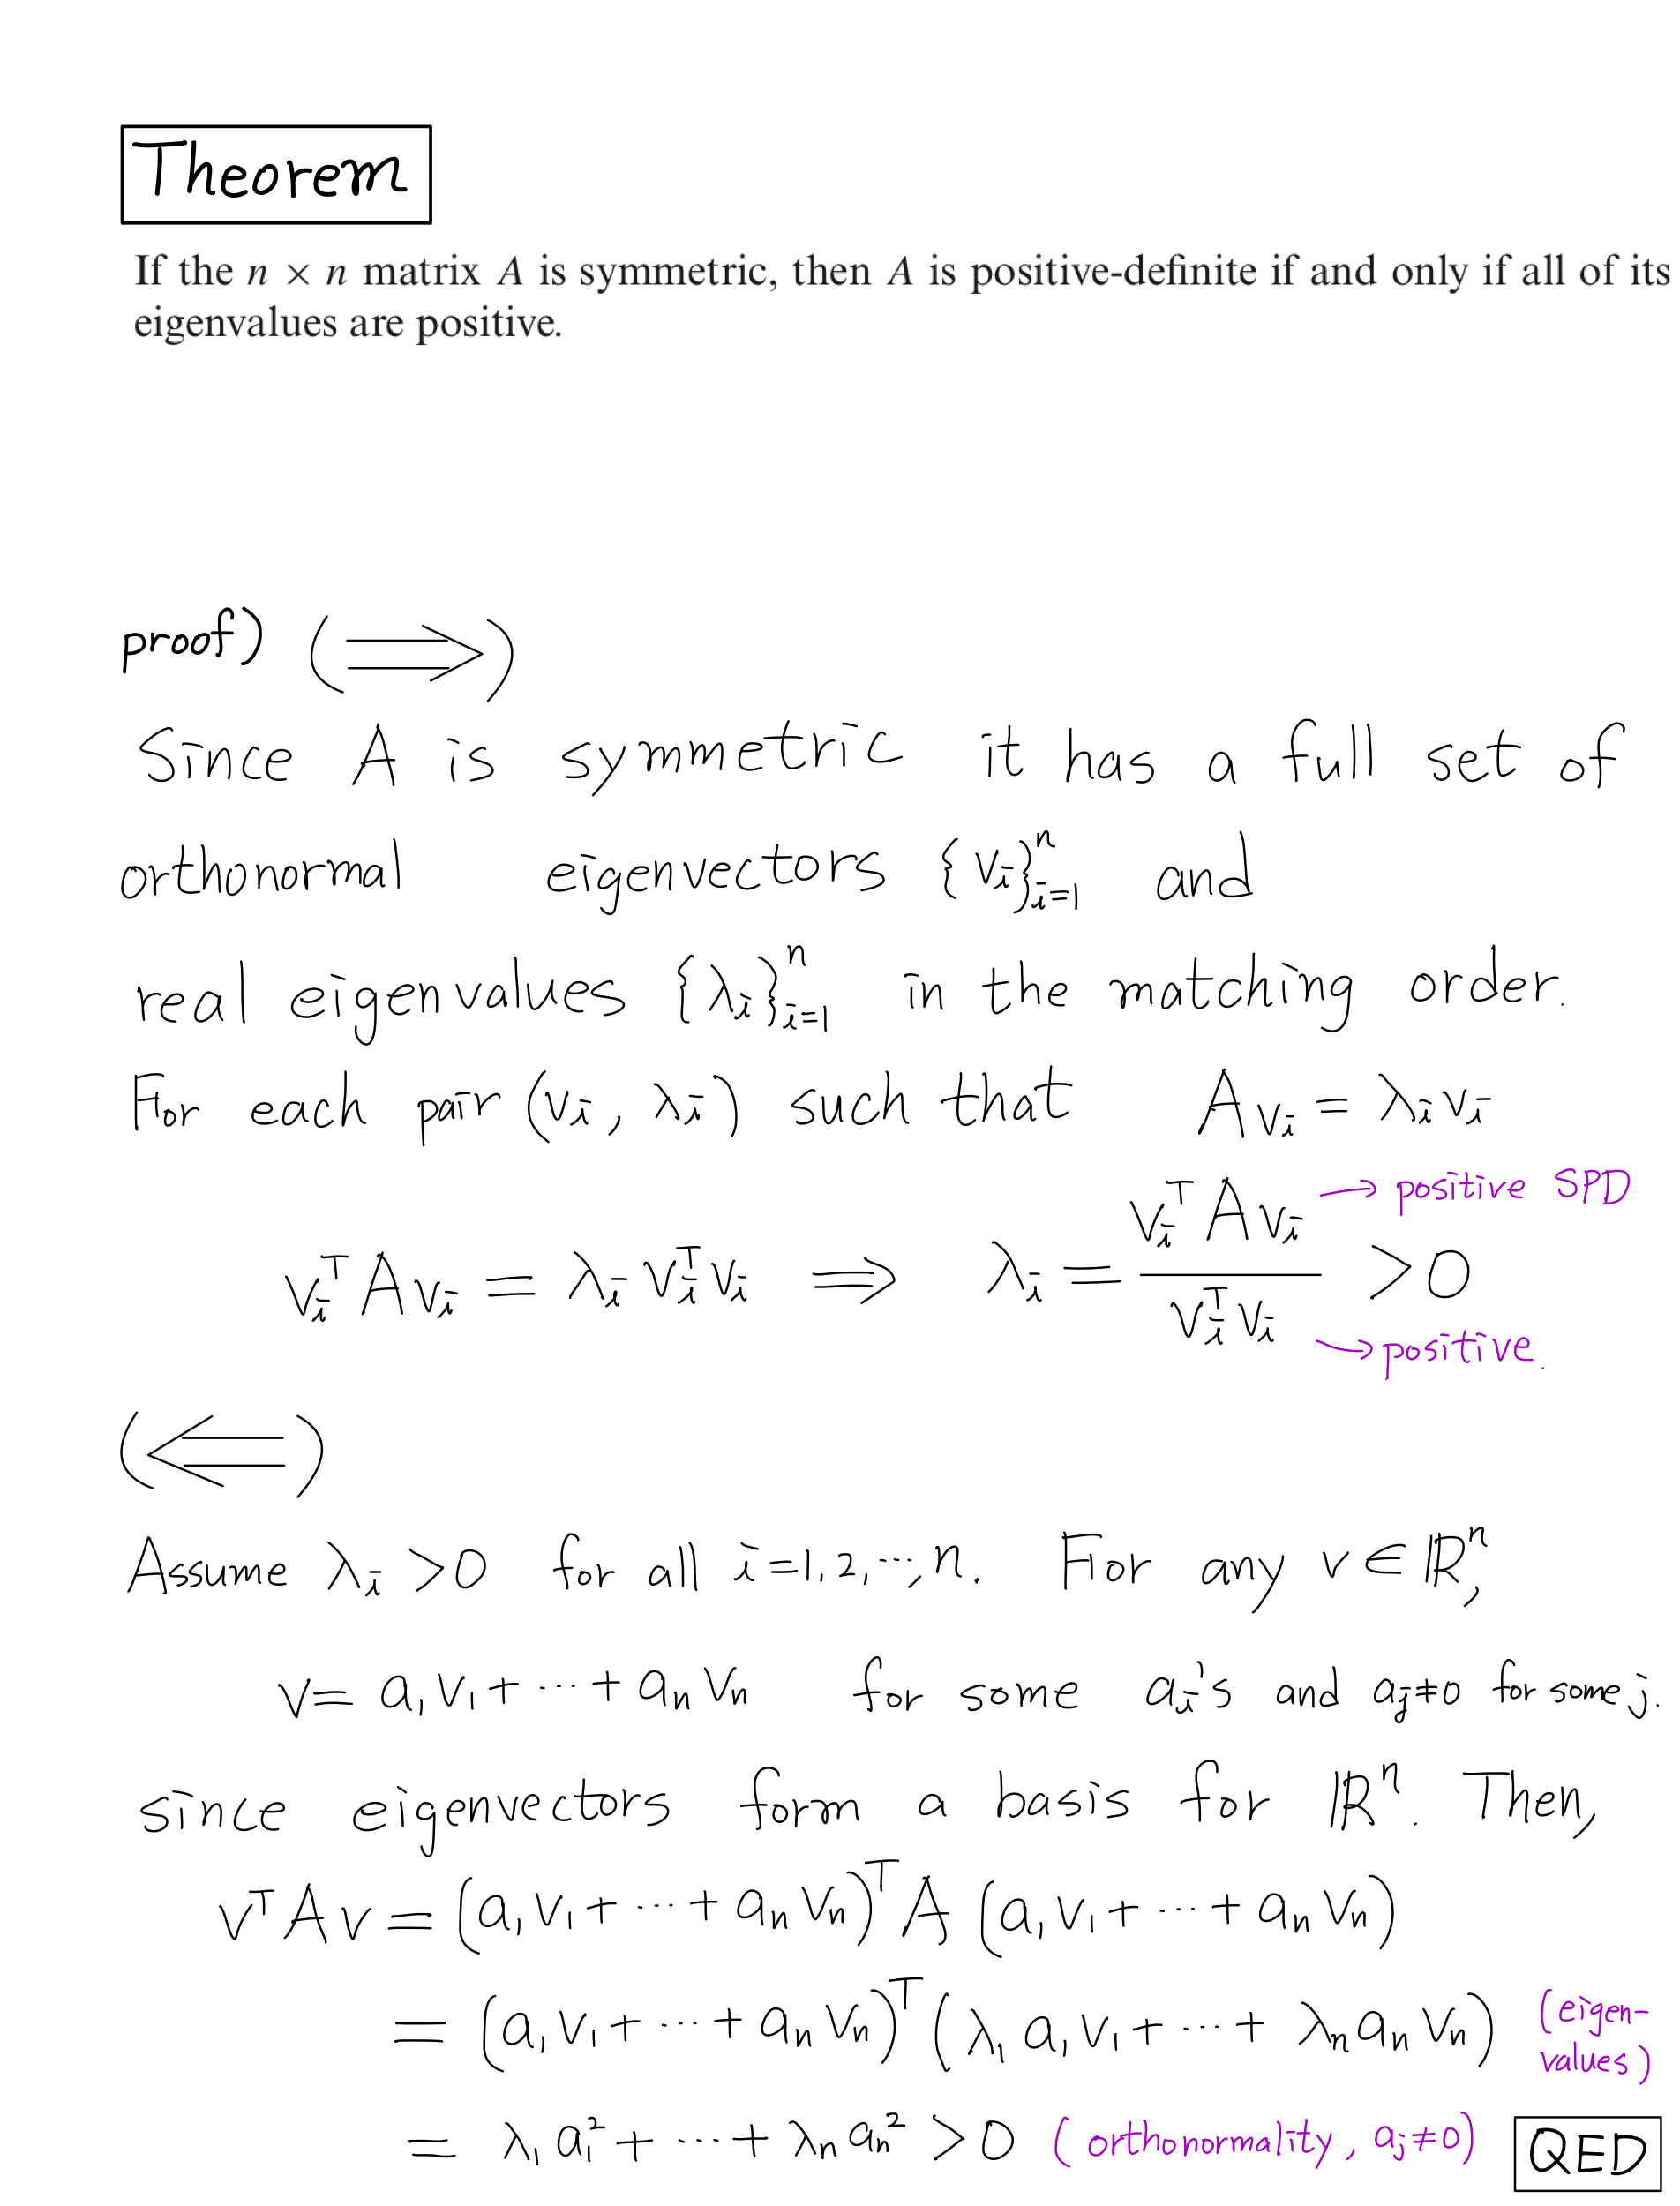 Theorem
If the n × n matrix A is symmetric, then A is positive-definite if and only if all of its
eigenvalues are positive.
proof) (⟹)
Since A is symmetric it has a full set of
orthonormal eigenvectors {vᵢ}ⁿᵢ₌₁ and
real eigenvalues {λᵢ}ⁿᵢ₌₁ in the matching order.
For each pair (vᵢ, λᵢ) such that Avᵢ = λᵢvᵢ
vᵢᵀAvᵢ = λᵢvᵢᵀvᵢ ⟹ λᵢ = vᵢᵀAvᵢ / vᵢᵀvᵢ > 0 → positive SPD → positive.
(⟸)
Assume λᵢ > 0 for all i = 1, 2, ⋯, n. For any v ∈ ℝⁿ,
v = a₁v₁ + ⋯ + aₙvₙ for some aᵢ's and aⱼ ≠ 0 for some j.
since eigenvectors form a basis for ℝⁿ. Then,
vᵀAv = (a₁v₁ + ⋯ + aₙvₙ)ᵀA(a₁v₁ + ⋯ + aₙvₙ)
= (a₁v₁ + ⋯ + aₙvₙ)ᵀ(λ₁a₁v₁ + ⋯ + λₙaₙvₙ) (eigen-
values)
= λ₁a₁² + ⋯ + λₙaₙ² > 0 (orthonormality, aⱼ ≠ 0) QED